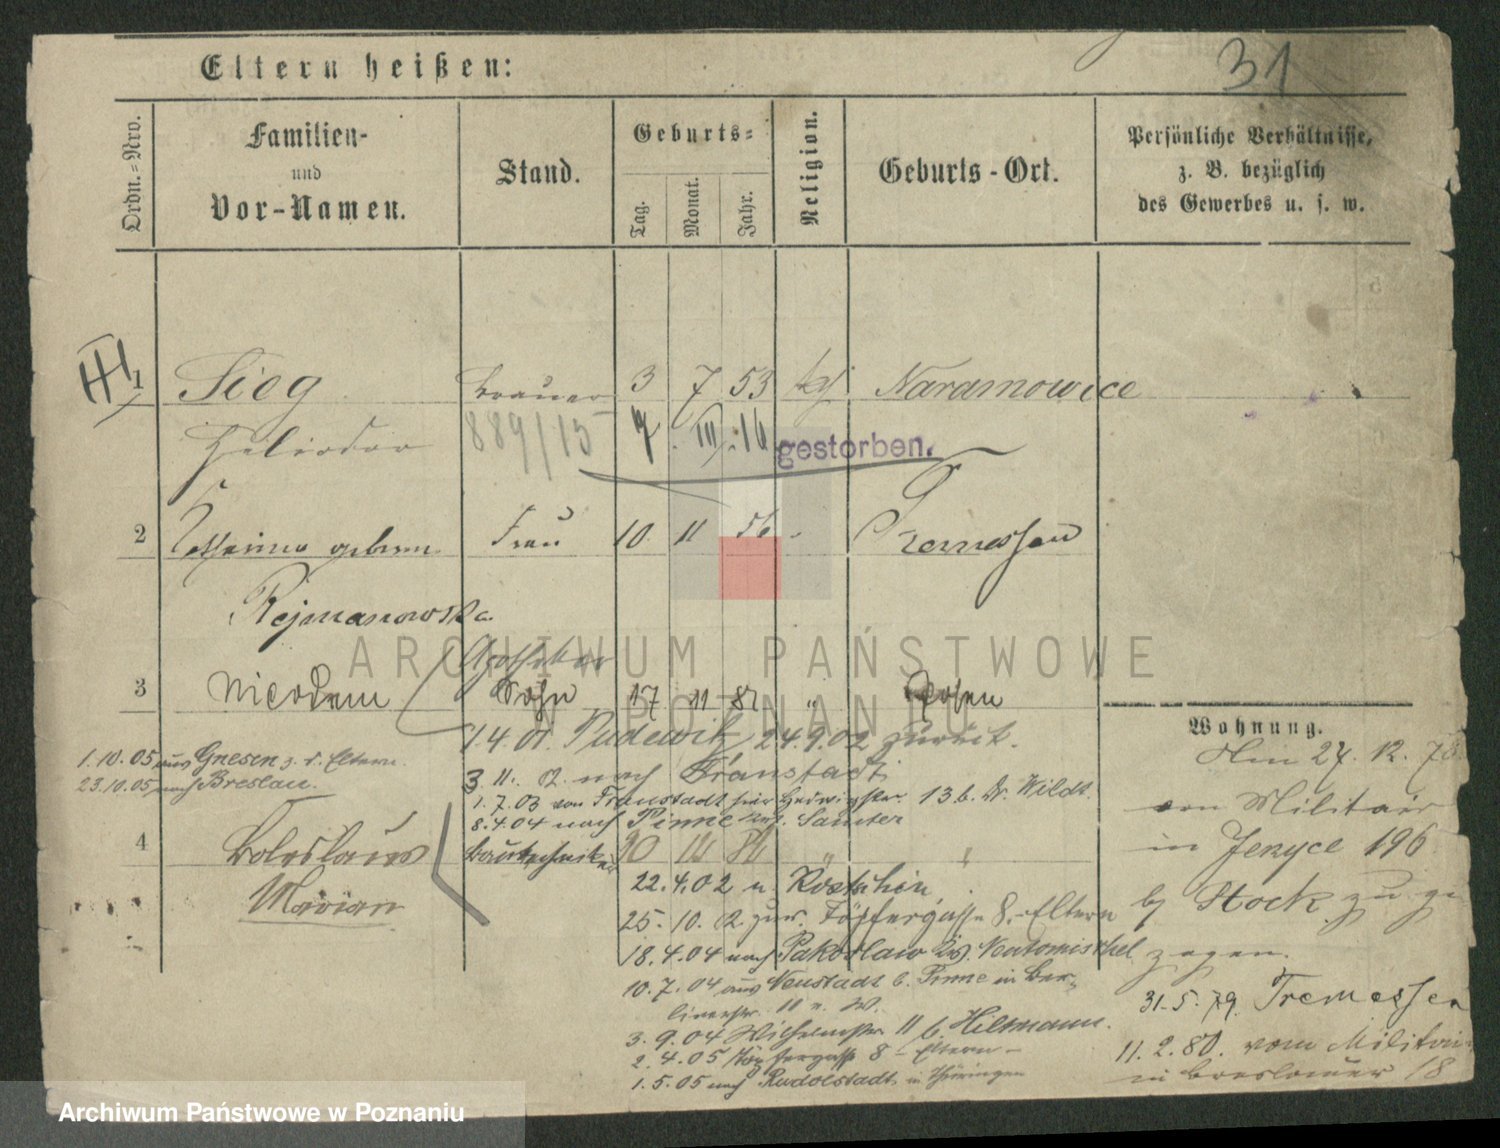 31
Eltern heißen:
Ordn.=Nro.
Familien-
und
Vor-Namen.
Stand.
Geburts=
Tag.
Monat.
Jahr.
Religion.
Geburts-Ort.
Persönliche Verhältnisse,
z. B. bezüglich
des Gewerbes u. s. w.
1 Sieg Brauer 3 7 53 kf Naramowice
Heliodor 889/15 7. III. 16 gestorben.
2 geboren Frau 10. 11 56 Tremessen
Rejmanowska
Apotheker
3 Nicodem Sohn 17 11 82 " Posen
1.4.01. Pudewitz 24.9.02 zurück.
1.10.05 aus Gnesen z. d. Eltern.
23.10.05 nach Breslau.
3.11. 02. nach Fraustadt
1.7.03 von Fraustadt hier 13 b. Dr. Wildt.
8.4.04 nach Pinne Krs. Samter
4 Boleslaus Bautechniker "
Marian
22.4.02 n. Kostschin
25.10. 02 zur. Töpfergasse 8.-Eltern
18.4.04 nach Pakoslaw Krs. Neutomischel
10.7.04 aus Neustadt b. Pinne in Ber-
linerstr. 11 b. W.
3.9.04 11 b. Hiltmann.
2.4.05 Töpfergasse 8 - Eltern -
1.5.05 nach Rudolstadt in Thüringen
Wohnung.
Am 27. 12. 78
vom Militair
in Jerzyce 196
by Stock zu ge
zogen.
31.5.79. Tremessen
11.2.80. vom Militair
in Breslauer 18
ARCHIWUM PAŃSTWOWE
W POZNANIU
Archiwum Państwowe w Poznaniu